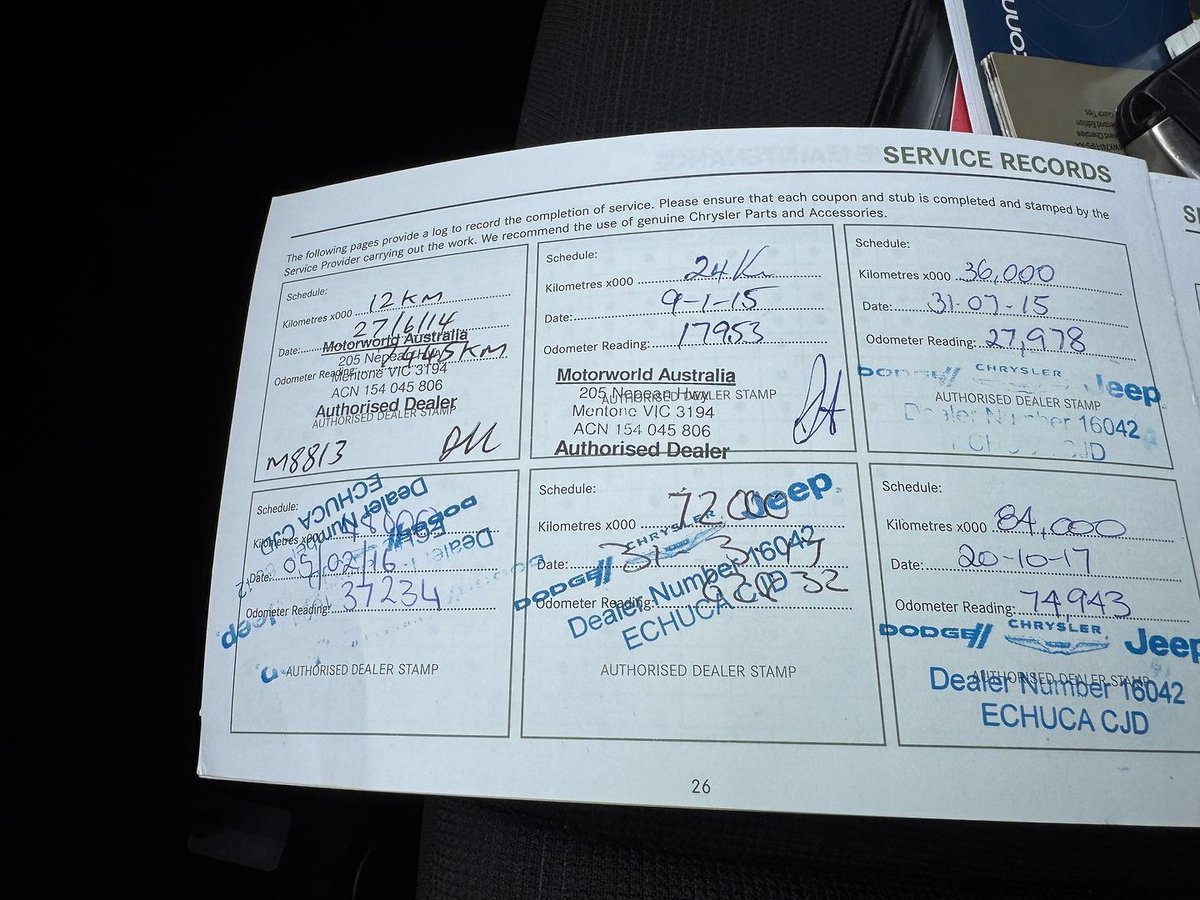 SERVICE RECORDS
The following pages provide a log to record the completion of service. Please ensure that each coupon and stub is completed and stamped by the
Service Provider carrying out the work. We recommend the use of genuine Chrysler Parts and Accessories.
Schedule:
Kilometres x000 12 KM
Date: 27/6/14
Odometer Reading:
Motorworld Australia
205 Nepean Hwy
Mentone VIC 3194
ACN 154 045 806
Authorised Dealer
AUTHORISED DEALER STAMP
M8813
Schedule:
Kilometres x000 24 K
Date: 9-1-15
Odometer Reading: 17953
Motorworld Australia
205 Nepean Hwy
AUTHORISED DEALER STAMP
Mentone VIC 3194
ACN 154 045 806
Authorised Dealer
Schedule:
Kilometres x000 36,000
Date: 31-07-15
Odometer Reading: 27,978
DODGE CHRYSLER Jeep
AUTHORISED DEALER STAMP
Dealer Number 16042
ECHUCA CJD
Schedule:
Kilometres x000
Date: 05/02/16
Odometer Reading: 37234
Dealer Number
ECHUCA CJD
DODGE
Dealer
Jeep
AUTHORISED DEALER STAMP
Schedule:
Kilometres x000 72000
Date:
Odometer Reading:
DODGE CHRYSLER Jeep
Dealer Number 16042
ECHUCA CJD
AUTHORISED DEALER STAMP
Schedule:
Kilometres x000 84,000
Date: 20-10-17
Odometer Reading: 74943
DODGE CHRYSLER Jeep
AUTHORISED DEALER STAMP
Dealer Number 16042
ECHUCA CJD
26
Grand Cherokee
Second Edition
Quick Tips